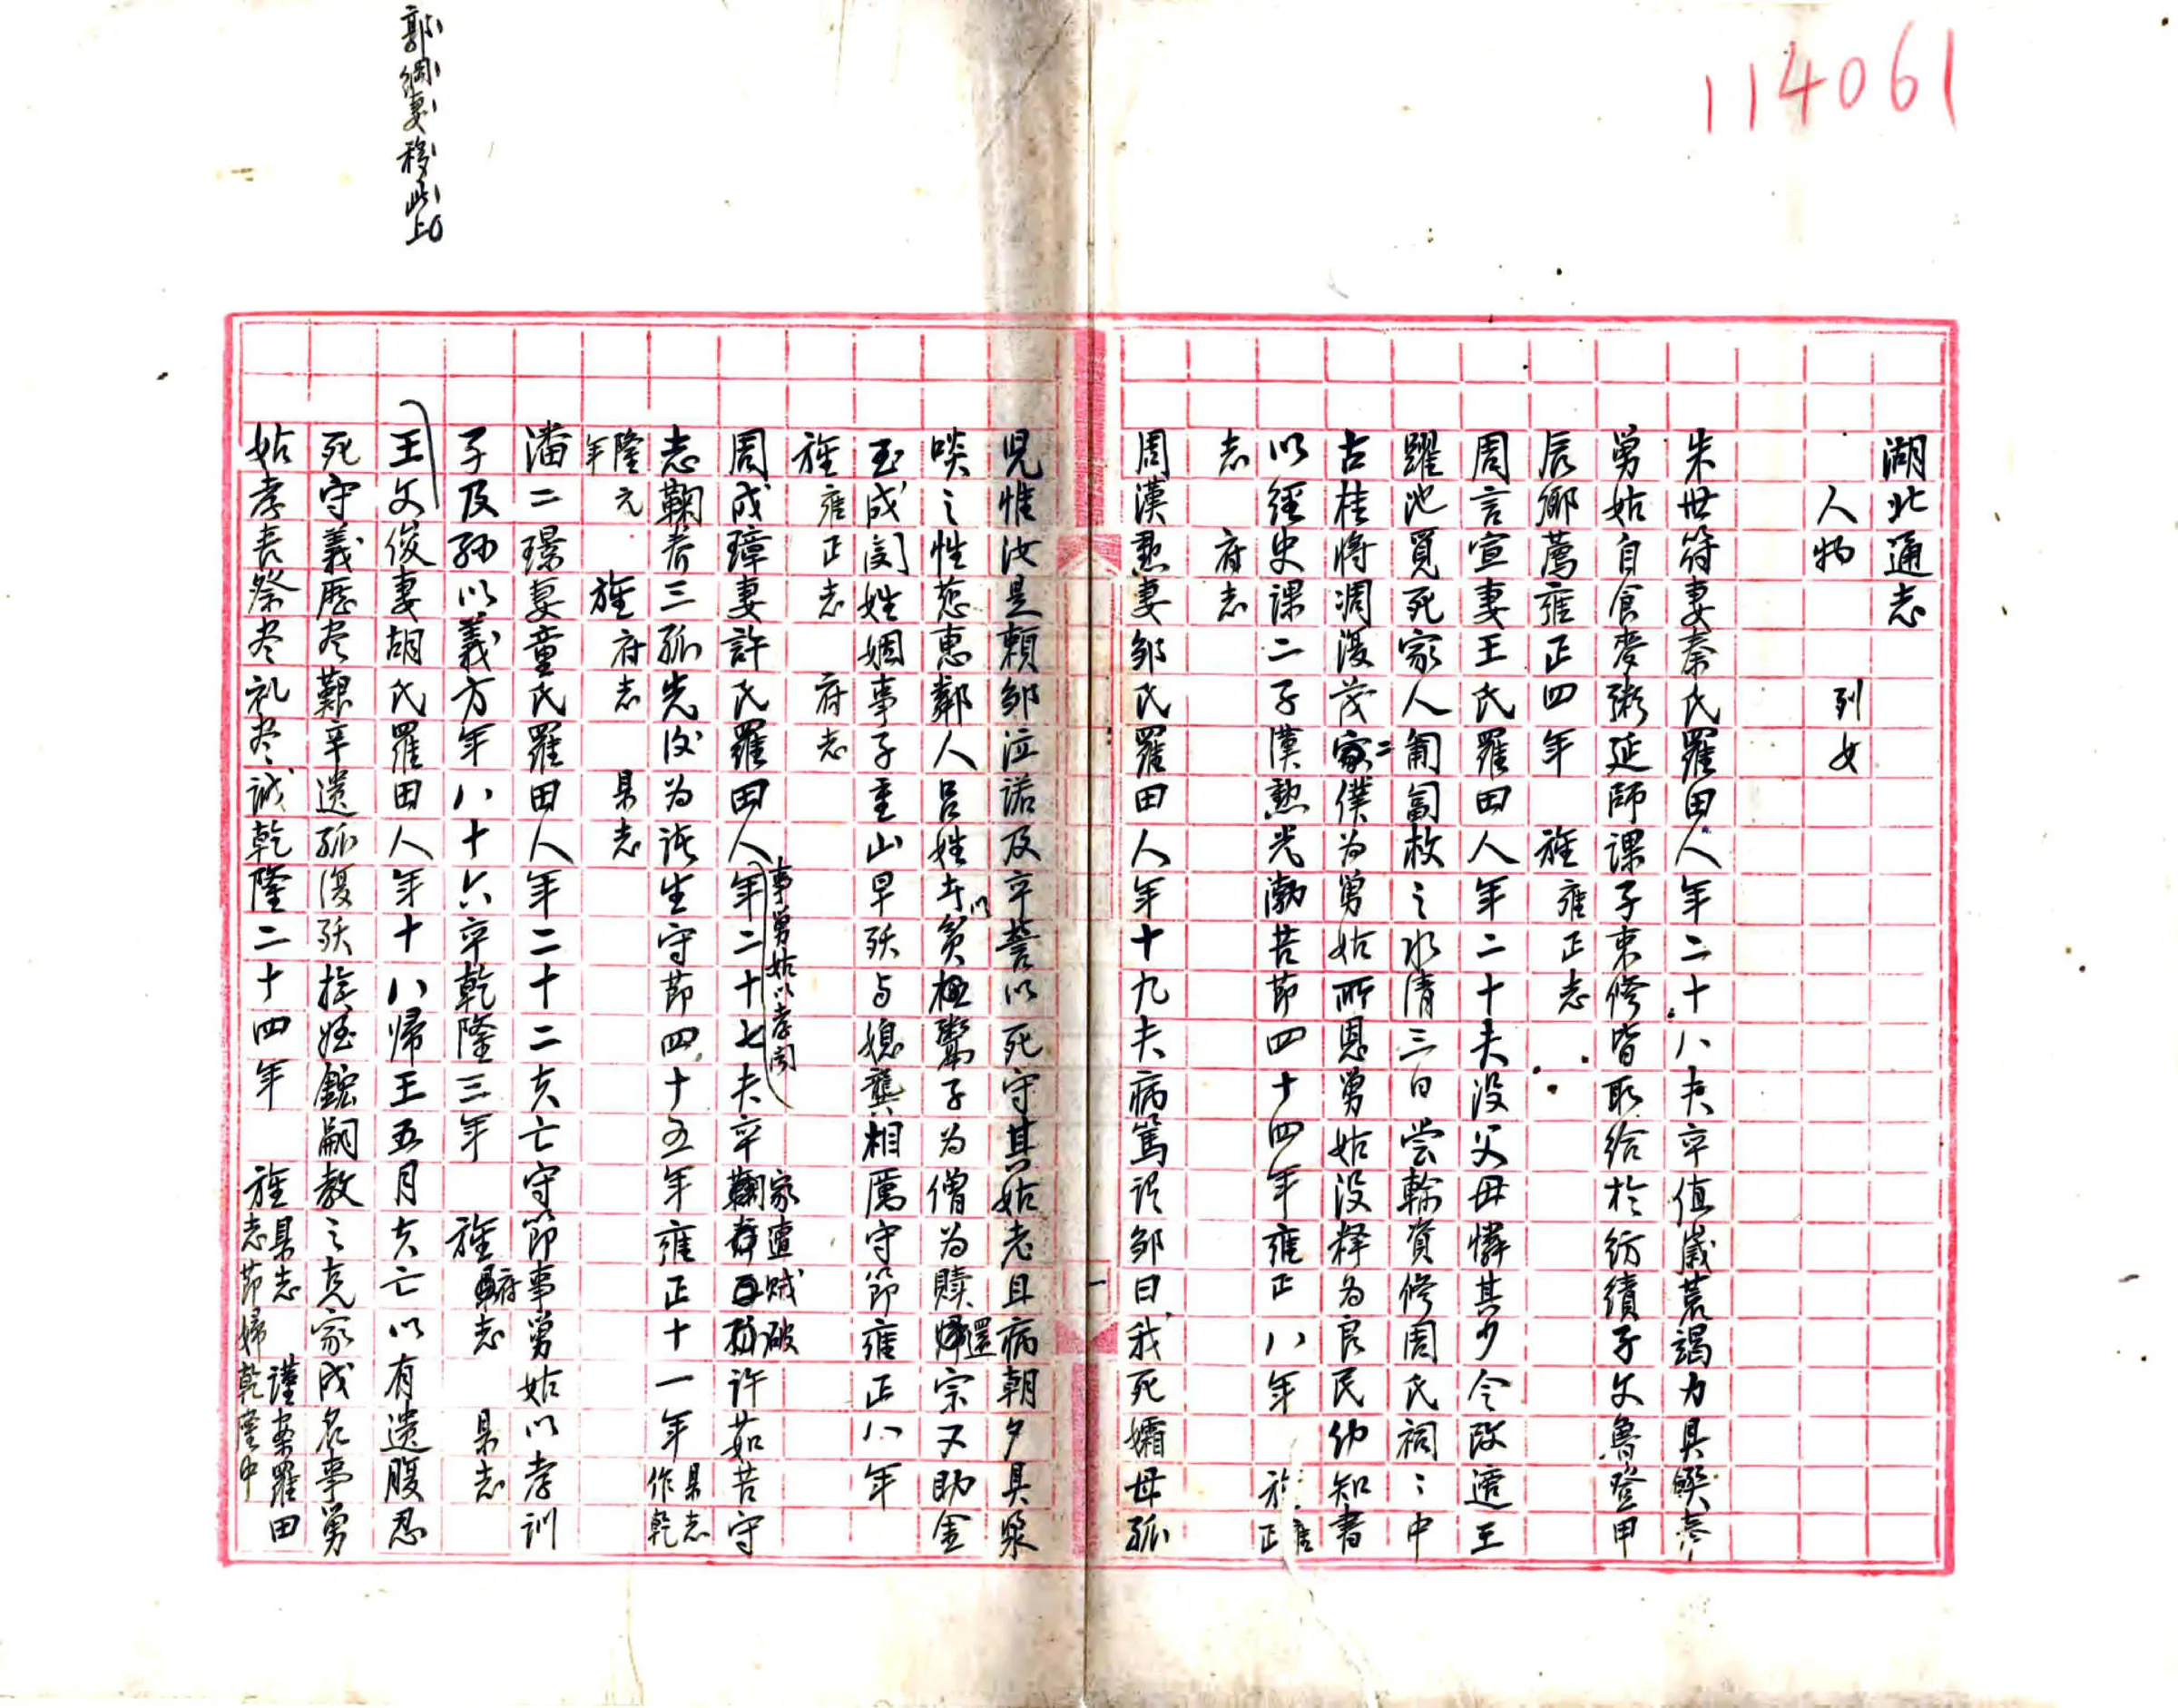 114061
湖北通志
人物　列女
朱世符妻秦氏羅田人年二十八夫卒值歲荒竭力具饌奉
舅姑自食麥粥延師課子束修皆取給於紡績子文魯登甲
辰鄉薦雍正四年　旌雍正志
周言宣妻王氏羅田人年二十夫沒父母憐其少令改適王
躍池覓死家人匍匐救之水清三日嘗輸資修周氏祠〻中
古桂將凋復茂二家僕為舅姑所恩舅姑沒釋為良民幼知書
以經史課二子漢勲光勛苦節四十四年雍正八年　旌雍正
志　府志
周漢勲妻鄒氏羅田人年十九夫病篤語鄒曰我死孀母孤
兒惟汝是賴鄒泣諾及卒誓以死守其姑老且病朝夕具漿
啖之性慈惠鄰人呂姓者以貧極鬻子為僧為贖還宗又助金
玉成閔姓姻事子重山早殀与媳龔相厲守節雍正八年
旌雍正志　府志
周成璋妻許氏羅田人事舅姑以孝聞年二十七夫卒家遭賊破許茹苦守
志鞠養三孤先後為諸生守節四十五年雍正十一年縣志作乾
隆元年　旌府志　縣志
潘二璟妻童氏羅田人年二十二夫亡守節事舅姑以孝訓
子及孫以義方年八十六卒乾隆三年　旌府志　縣志
王文俊妻胡氏羅田人年十八歸王五月夫亡以有遺腹忍
死守義歷尽艱辛遺孤復殀撫姪錕嗣教之克家成名事舅
姑孝喪祭尽礼尽誠乾隆二十四年　旌縣志節婦　謹案羅田志乾隆中
郭綱妻移此上
一